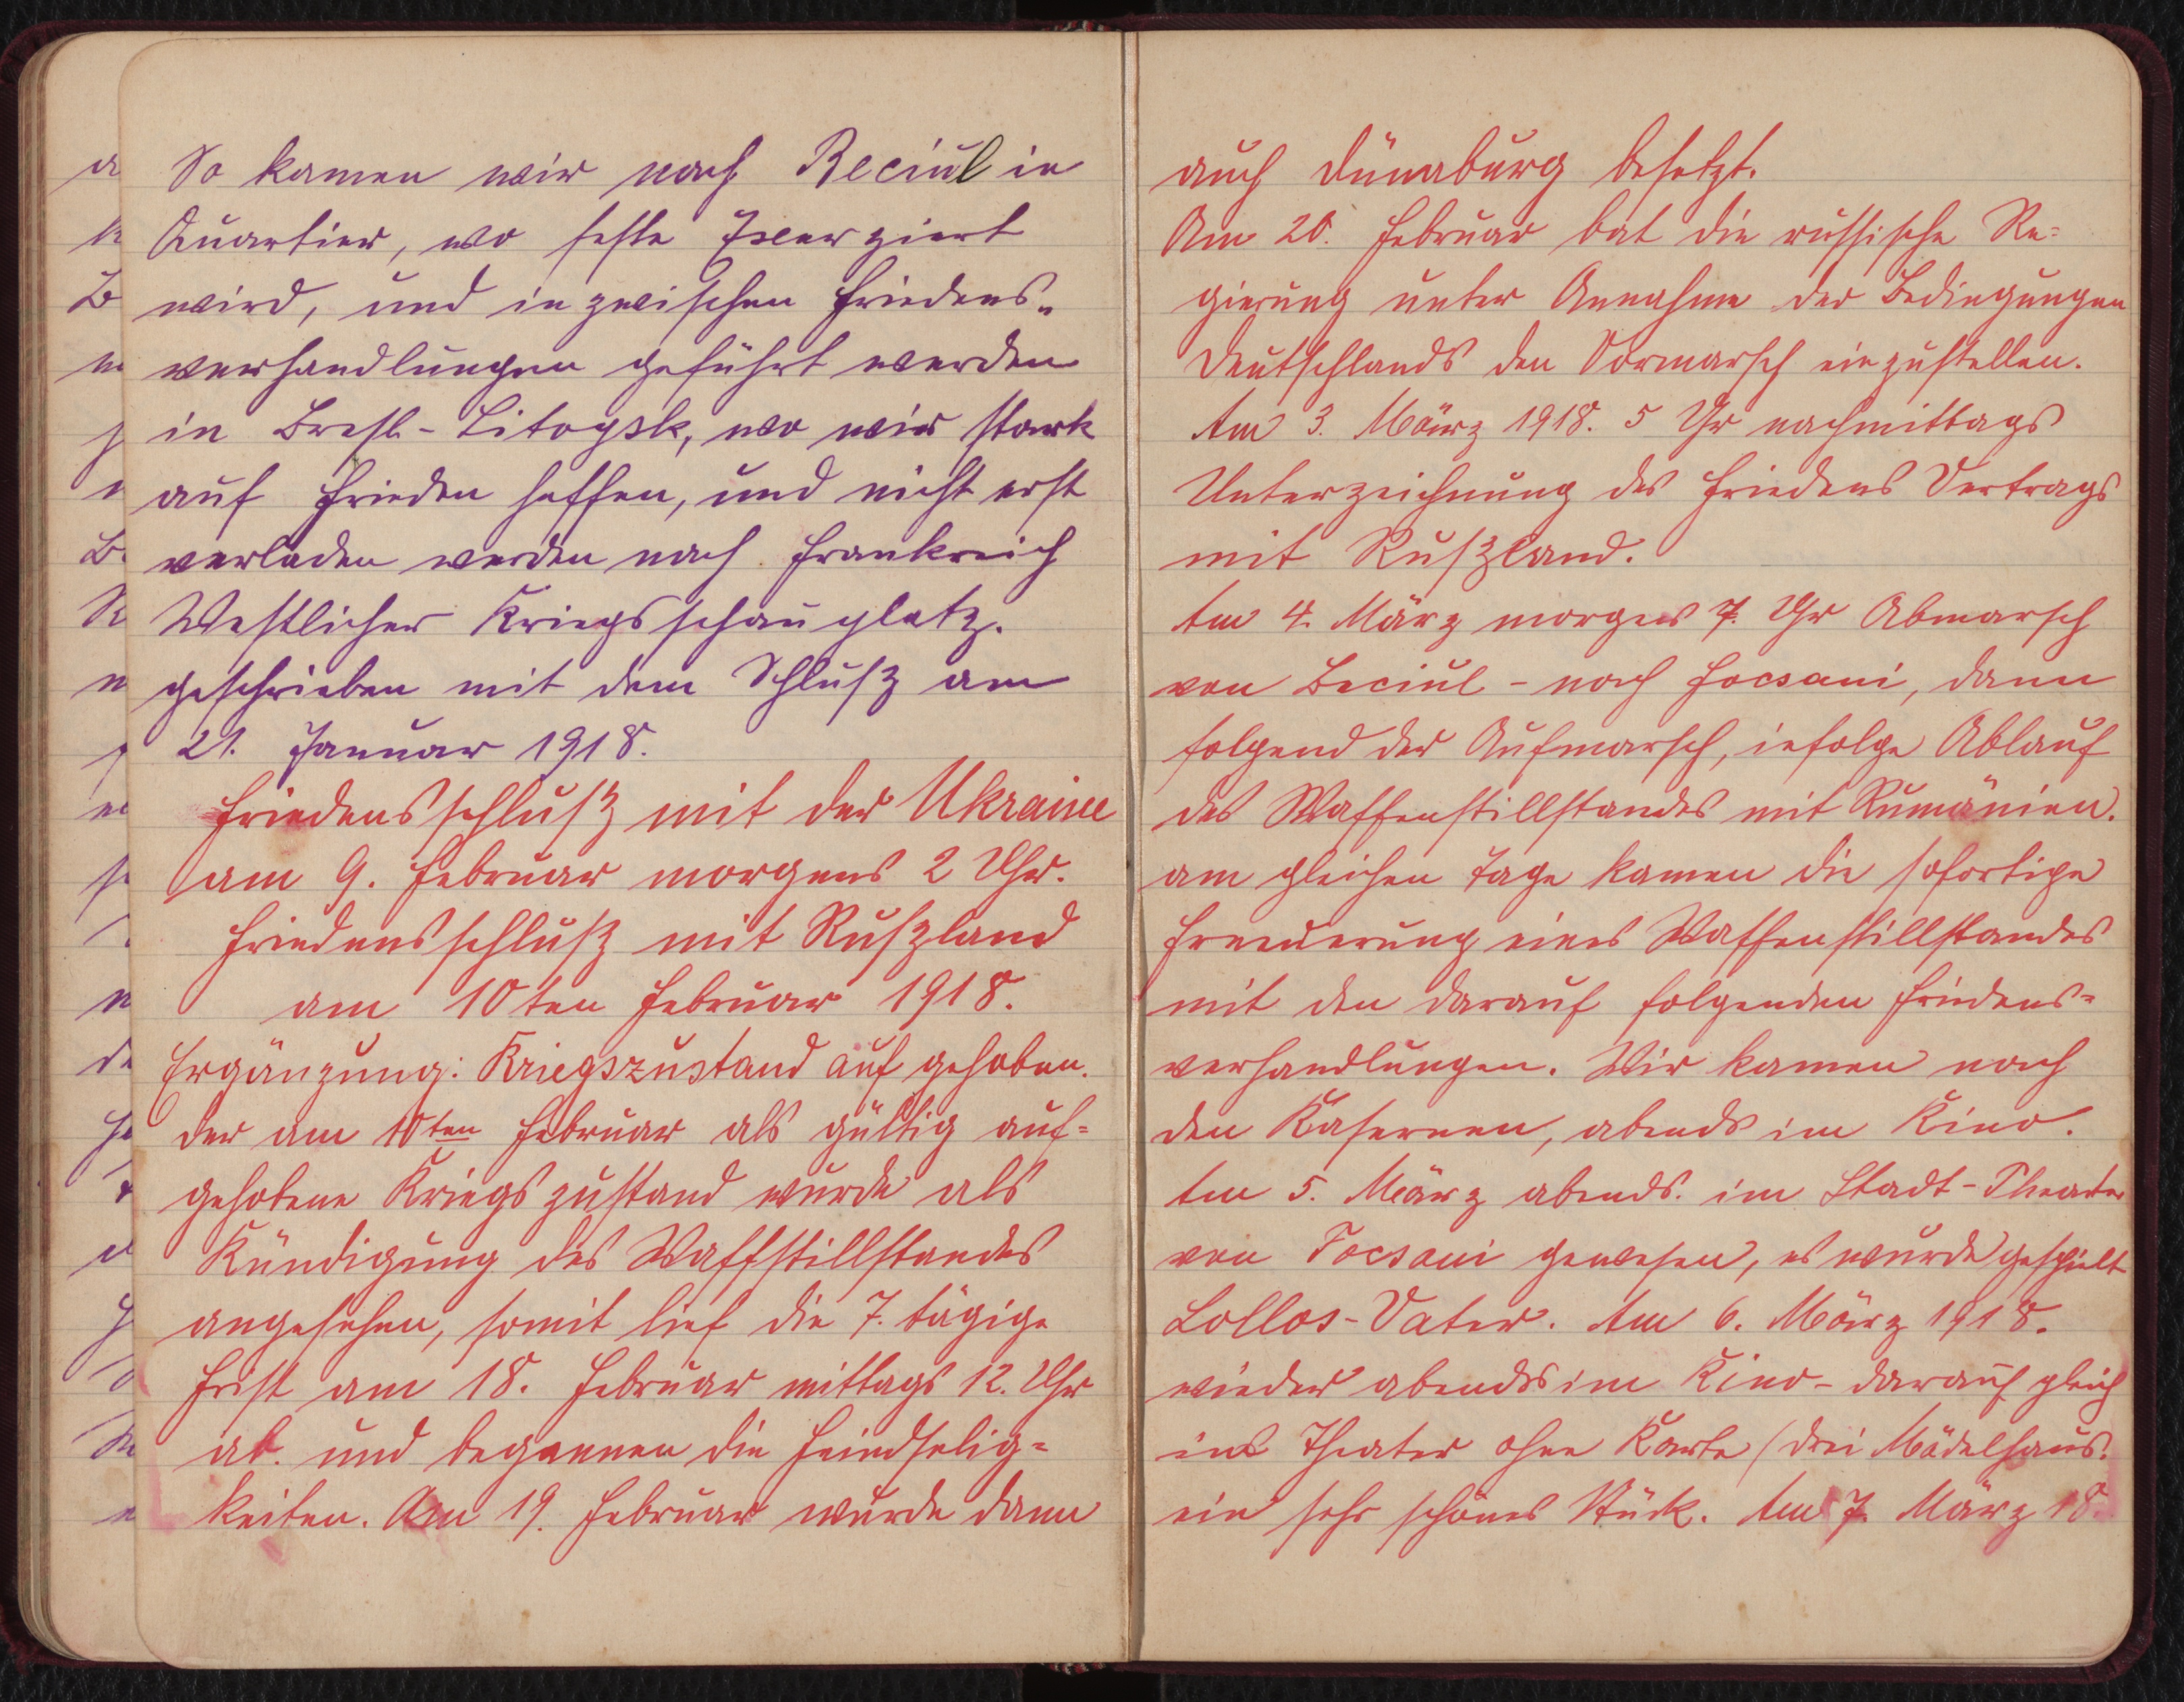 So kamen wir nach Beciul in
Quartier, wo feste Exerziert
wird, und inzwischen Friedens-
verhandlungen geführt werden
in Brest-Litoysk, wo wir stark
auf Frieden hoffen, und nicht erst
verladen werden nach Frankreich
Westlicher Kriegsschauplatz.
geschrieben mit dem Schluß am
21. Januar 1918.
Friedensschluß mit der Ukraine
am 9. Februar morgens 2 Uhr.
Friedensschluß mit Rußland
am 10ten Februar 1918.
Ergänzung: Kriegszustand aufgehoben.
der am 10ten Februar als gültig auf-
gehobene Kriegszustand wurde als
Kündigung des Waffstillstandes
angesehen, somit lief die 7. tägige
Frist am 18. Februar mittags 12. Uhr
ab. und begannen die Feindselig-
keiten. Am 19. Februar wurde dann
auch Dünaburg besetzt.
Am 20. Februar bat die russische Re-
gierung unter Annahme der Bedingungen
Deutschlands den Vormarsch einzustellen.
Am 3. März 1918. 5 Uhr nachmittags
Unterzeichnung des Friedens Vertrags
mit Rußland.
Am 4. März morgens 7. Uhr Abmarsch
von Beciul - nach Focsani, dann
folgend der Aufmarsch, infolge Ablauf
des Waffenstillstandes mit Rumänien.
am gleichen Tage kamen die sofortige
Erneuerung eines Waffenstillstandes
mit den darauf folgenden Friedens-
verhandlungen. Wir kamen nach
den Kasernen, abends im Kino.
Am 5. März abends. im Stadt-Theater
von Focsani gewesen, es wurde gespielt
Lollos-Vater. Am 6. März 1918.
wieder abends im Kino - darauf gleich
ins Theater ohne Karte (drei Mädelhaus.
ein sehr schönes Stück. Am 7. März 18.